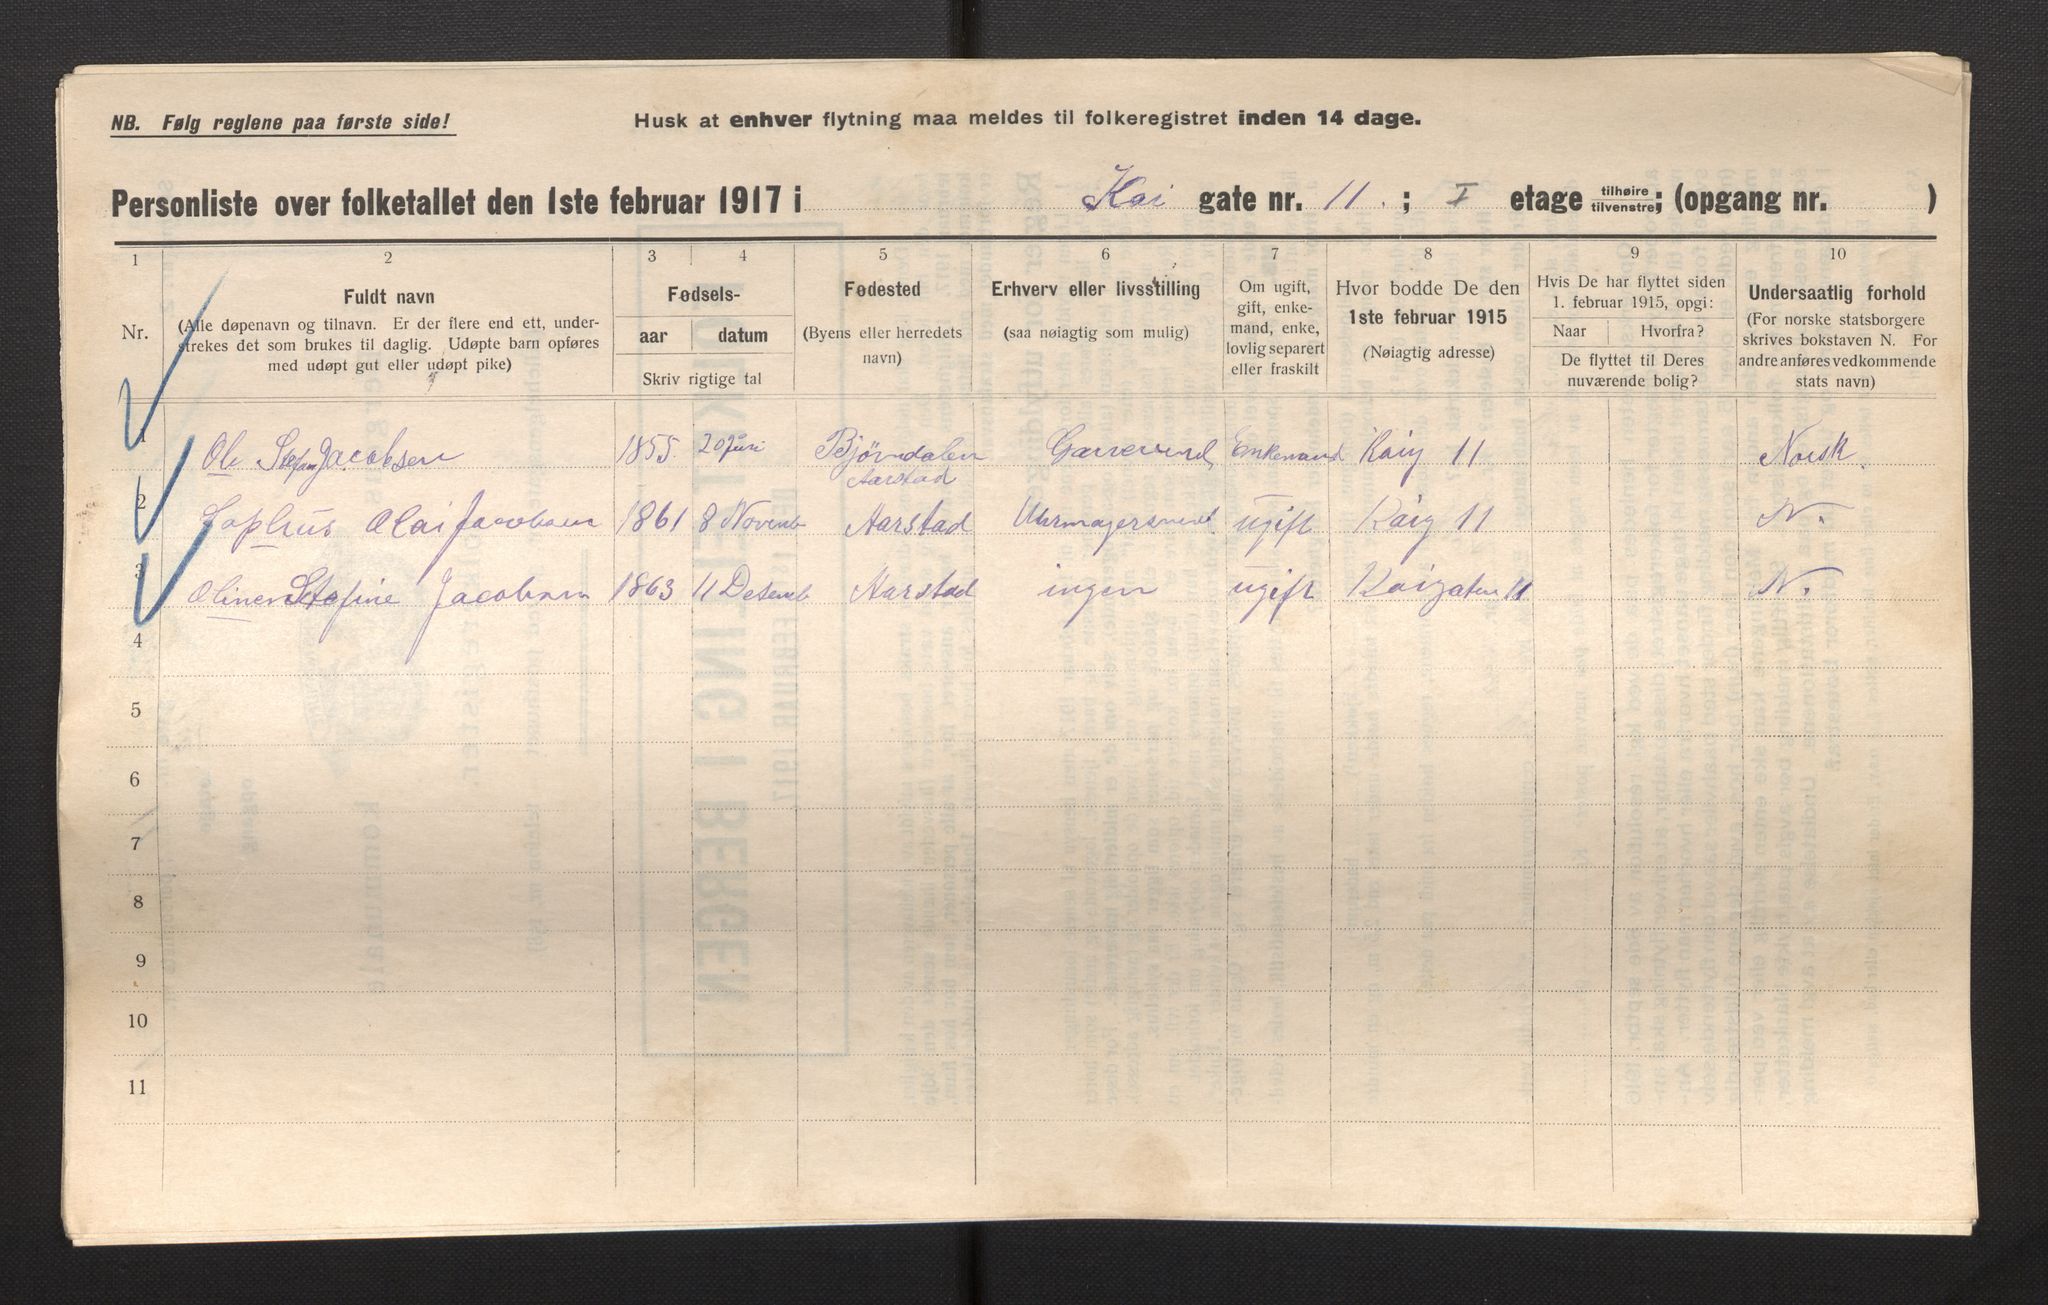 NB. Følg reglene paa første side!
Husk at enhver flytning maa meldes til folkeregistret inden 14 dage.
Personliste over folketallet den 1ste februar 1917 i Kai gate nr. 11. ; I etage tilhøire tilvenstre; (opgang nr. )
1 2 3 4 5 6 7 8 9 10
Nr.
Fuldt navn
(Alle døpenavn og tilnavn. Er der flere end ett, under-
strekes det som brukes til daglig. Udøpte barn opføres
med udøpt gut eller udøpt pike)
Fødsels-
aar datum
Skriv rigtige tal
Fødested
(Byens eller herredets
navn)
Erhverv eller livsstilling
(saa nøiagtig som mulig)
Om ugift,
gift, enke-
mand, enke,
lovlig separert
eller fraskilt
Hvor bodde De den
1ste februar 1915
(Nøiagtig adresse)
Hvis De har flyttet siden
1. februar 1915, opgi:
Naar Hvorfra?
De flyttet til Deres
nuværende bolig?
Undersaatlig forhold
(For norske statsborgere
skrives bokstaven N. For
andre anføres vedkommende
stats navn)
1 Ole Stefan Jacobsen 1855. 20 Juni Bjørndalen Enkemand Kaig 11 Norsk.
Aarstad
2 Sophus Olai Jacobsen 1861 8 Novemb Aarstad Uhrmagersvend ugift Kaig 11 N.
3 Oline Stefine Jacobsen 1863 11 Desemb Aarstad ingen ugift Kaigaten 11 N.
4
5
6
7
8
9
10
11